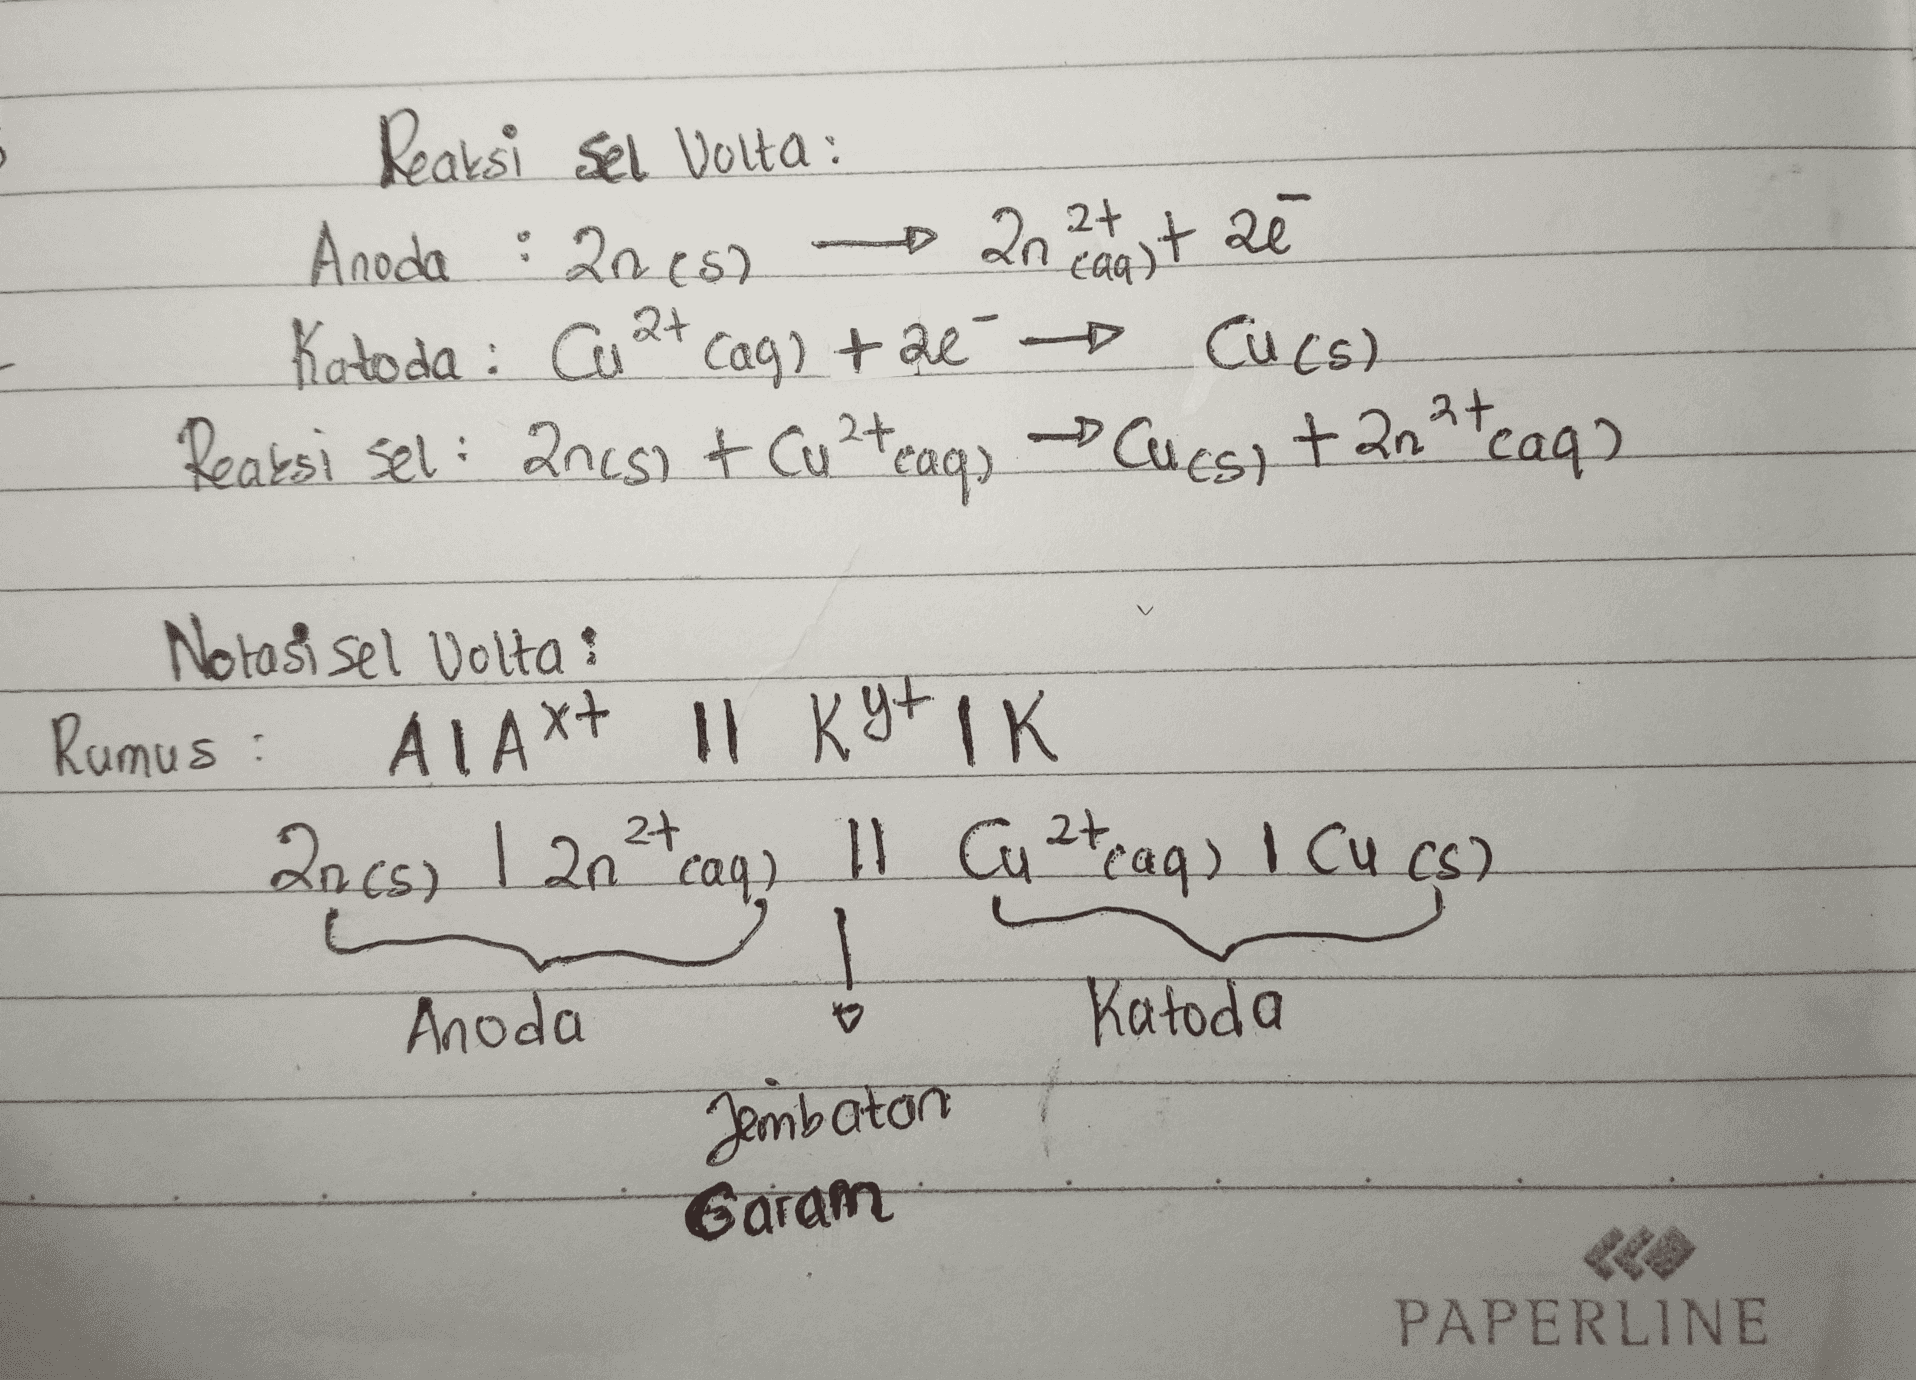 Reaksi Sel Volta:
Anoda : Zn (s) → Zn²⁺(aq) + 2e⁻
Katoda : Cu²⁺(aq) + 2e⁻ → Cu(s)
Reaksi sel : Zn(s) + Cu²⁺(aq) → Cu(s) + Zn²⁺(aq)
Notasi sel Volta :
Rumus : A | Aˣ⁺ || Kʸ⁺ | K
Zn(s) | Zn²⁺(aq) || Cu²⁺(aq) | Cu (s)
Anoda Katoda
Jembatan
Garam
PAPERLINE